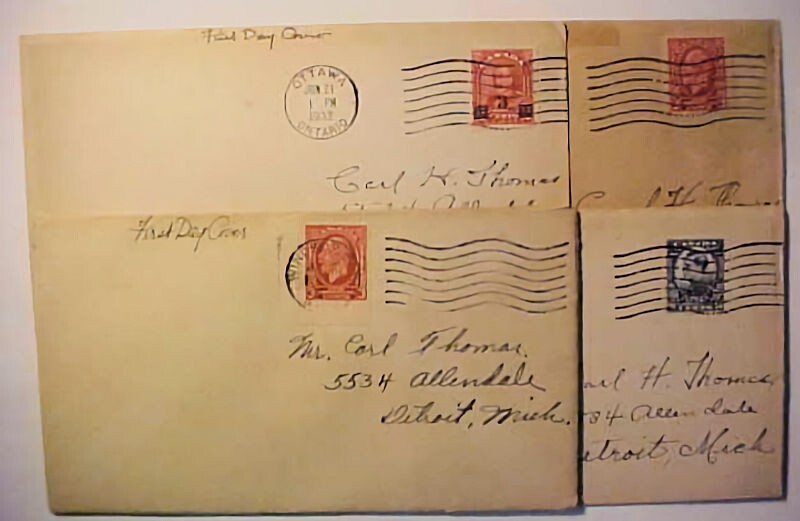 First Day Cover
OTTAWA
JUN 21
1 PM
1932
ONTARIO
3
Carl H. Thomas
5534 Allendale
Carl H. Thomas
First Day Cover
Mr. Carl Thomas.
5534 Allendale
Detroit, Mich.
CANADA
Carl H. Thomas
5534 Allendale
Detroit, Mich